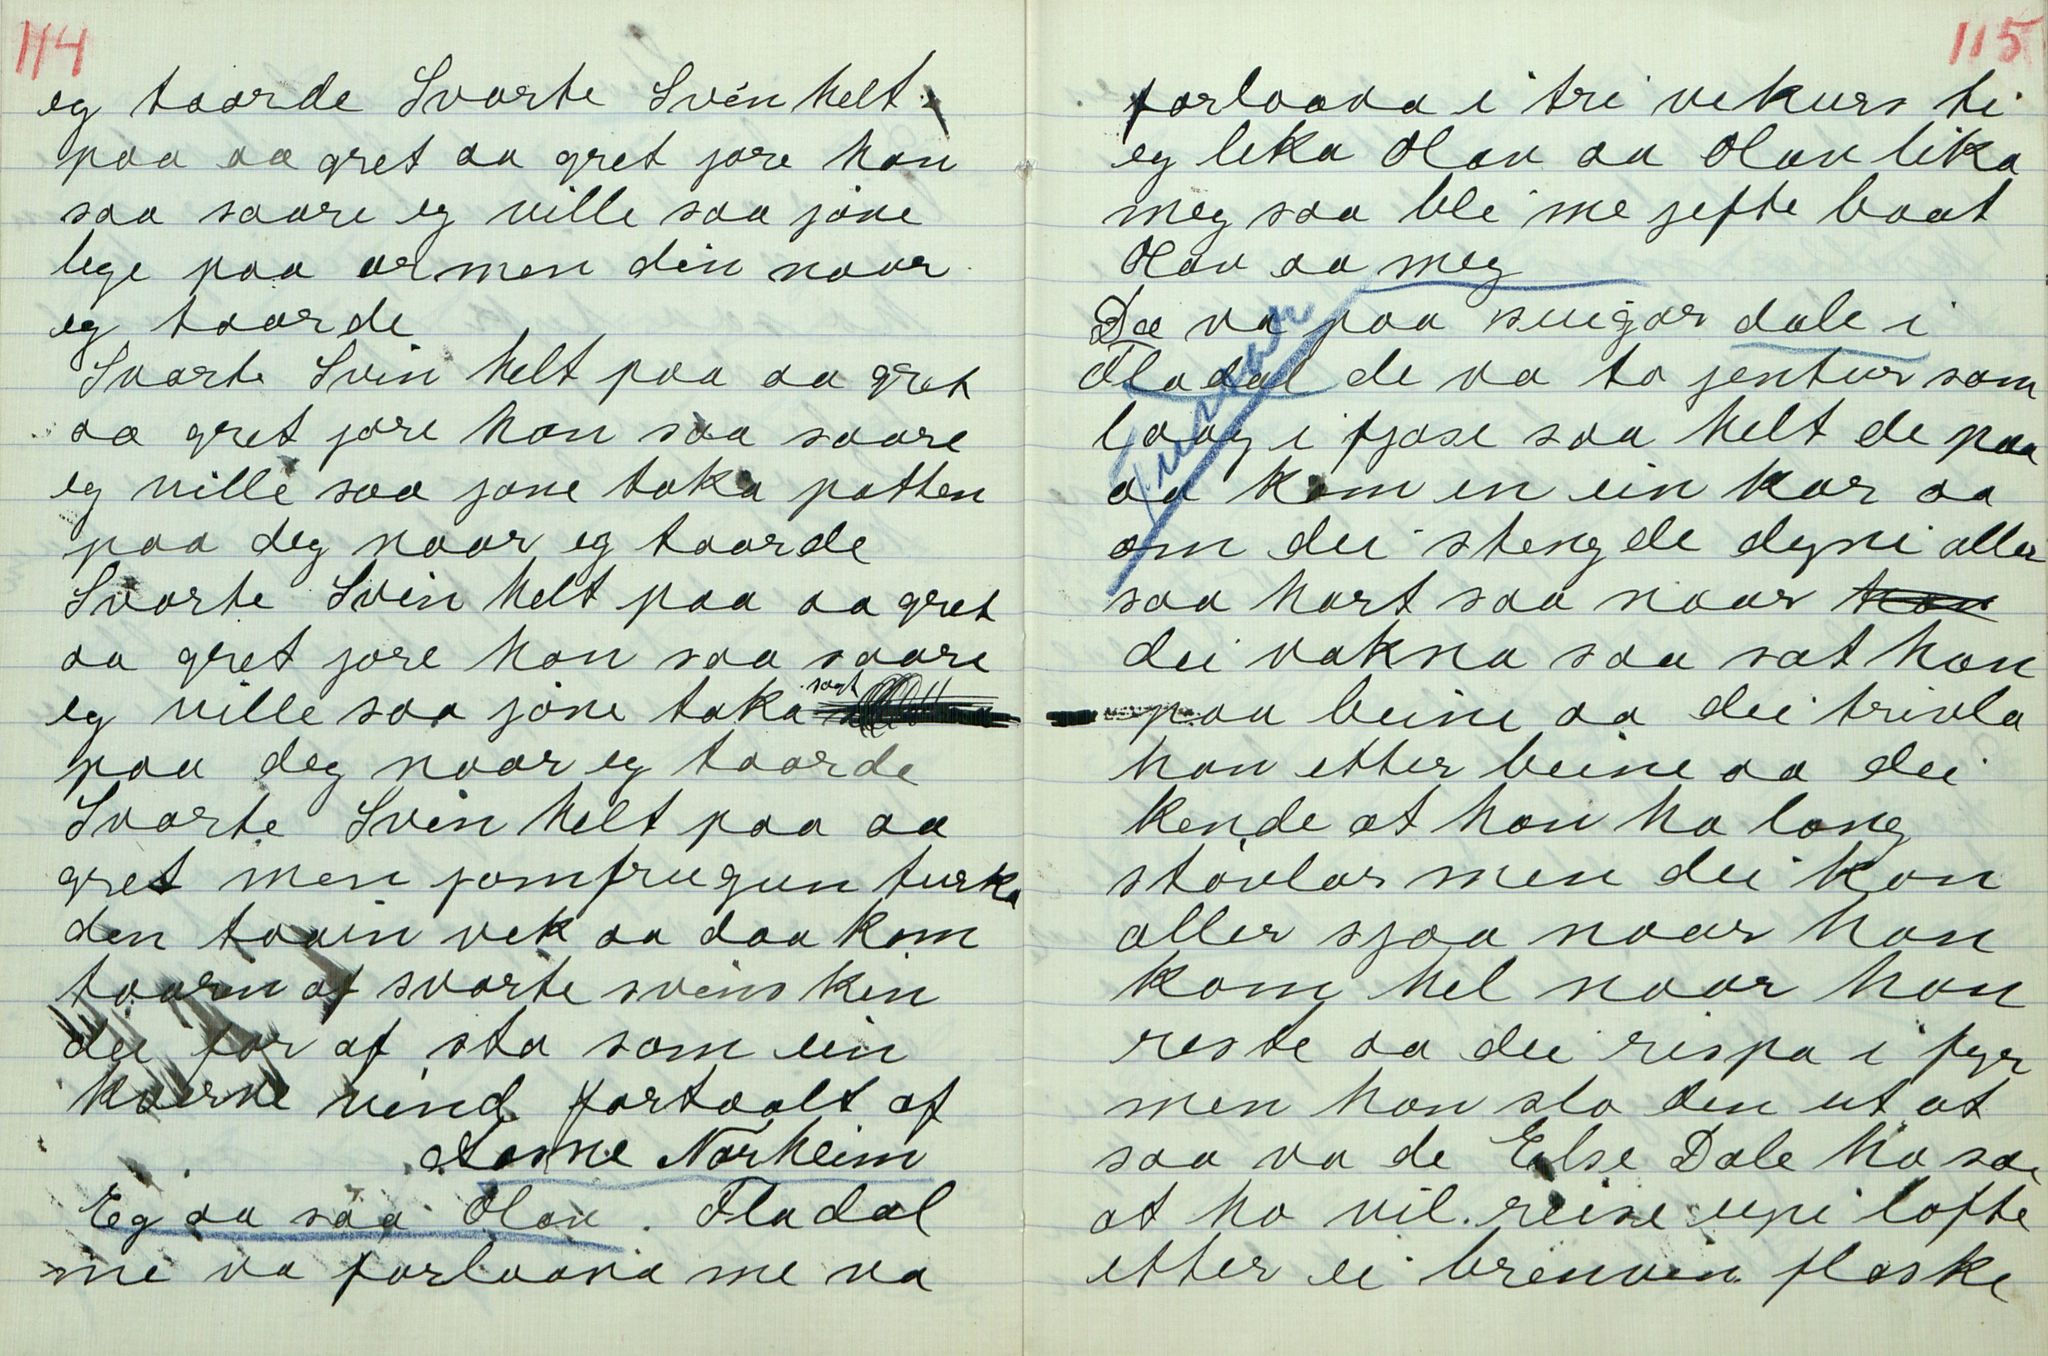 114
eg taarde Svarte Svein helt
paa aa gret aa gret jore han
saa saare eg ville saa jone
lege paa armen din naar
eg taarde
Svarte Svein helt paa aa gret
aa gret jore han saa saare
eg ville saa jone taka patten
paa deg naar eg taarde
Svarte Svein helt paa aa gret
aa gret jore han saa saare
eg ville saa jone taka saat
paa deg naar eg taarde
Svarte Svein helt paa aa
gret men jomfrugun turka
den taain vek aa daa kom
taarn af svarte sveins kin
dei for af sta som ein
kverve vind fortaalt af
Aasne Norheim
Eg aa saa Olav. Fladal
me va forlaava me va
115
forlaava i tri vekurs ti
eg lika Olav aa Olav lika
meg saa blei me jefte baat
Olav aa meg
De va paa suigar dale i
Fladal de va to jentur som
laag i fjose saa helt de paa
aa kom en ein kar aa
om dei stengde dyni aller
saa hart saa naar han
dei vakna saa sat han
paa beine aa dei trivla
han etter beine aa dei
kende at han ha lang
støvlar men dei kan
aller sjaa naar han
kom hel naar han
reste aa dei rispa i fyr
men han slo den ut at
saa va de Else Dale ho sae
at ho vil reise upi lofte
etter ei brenven flaske